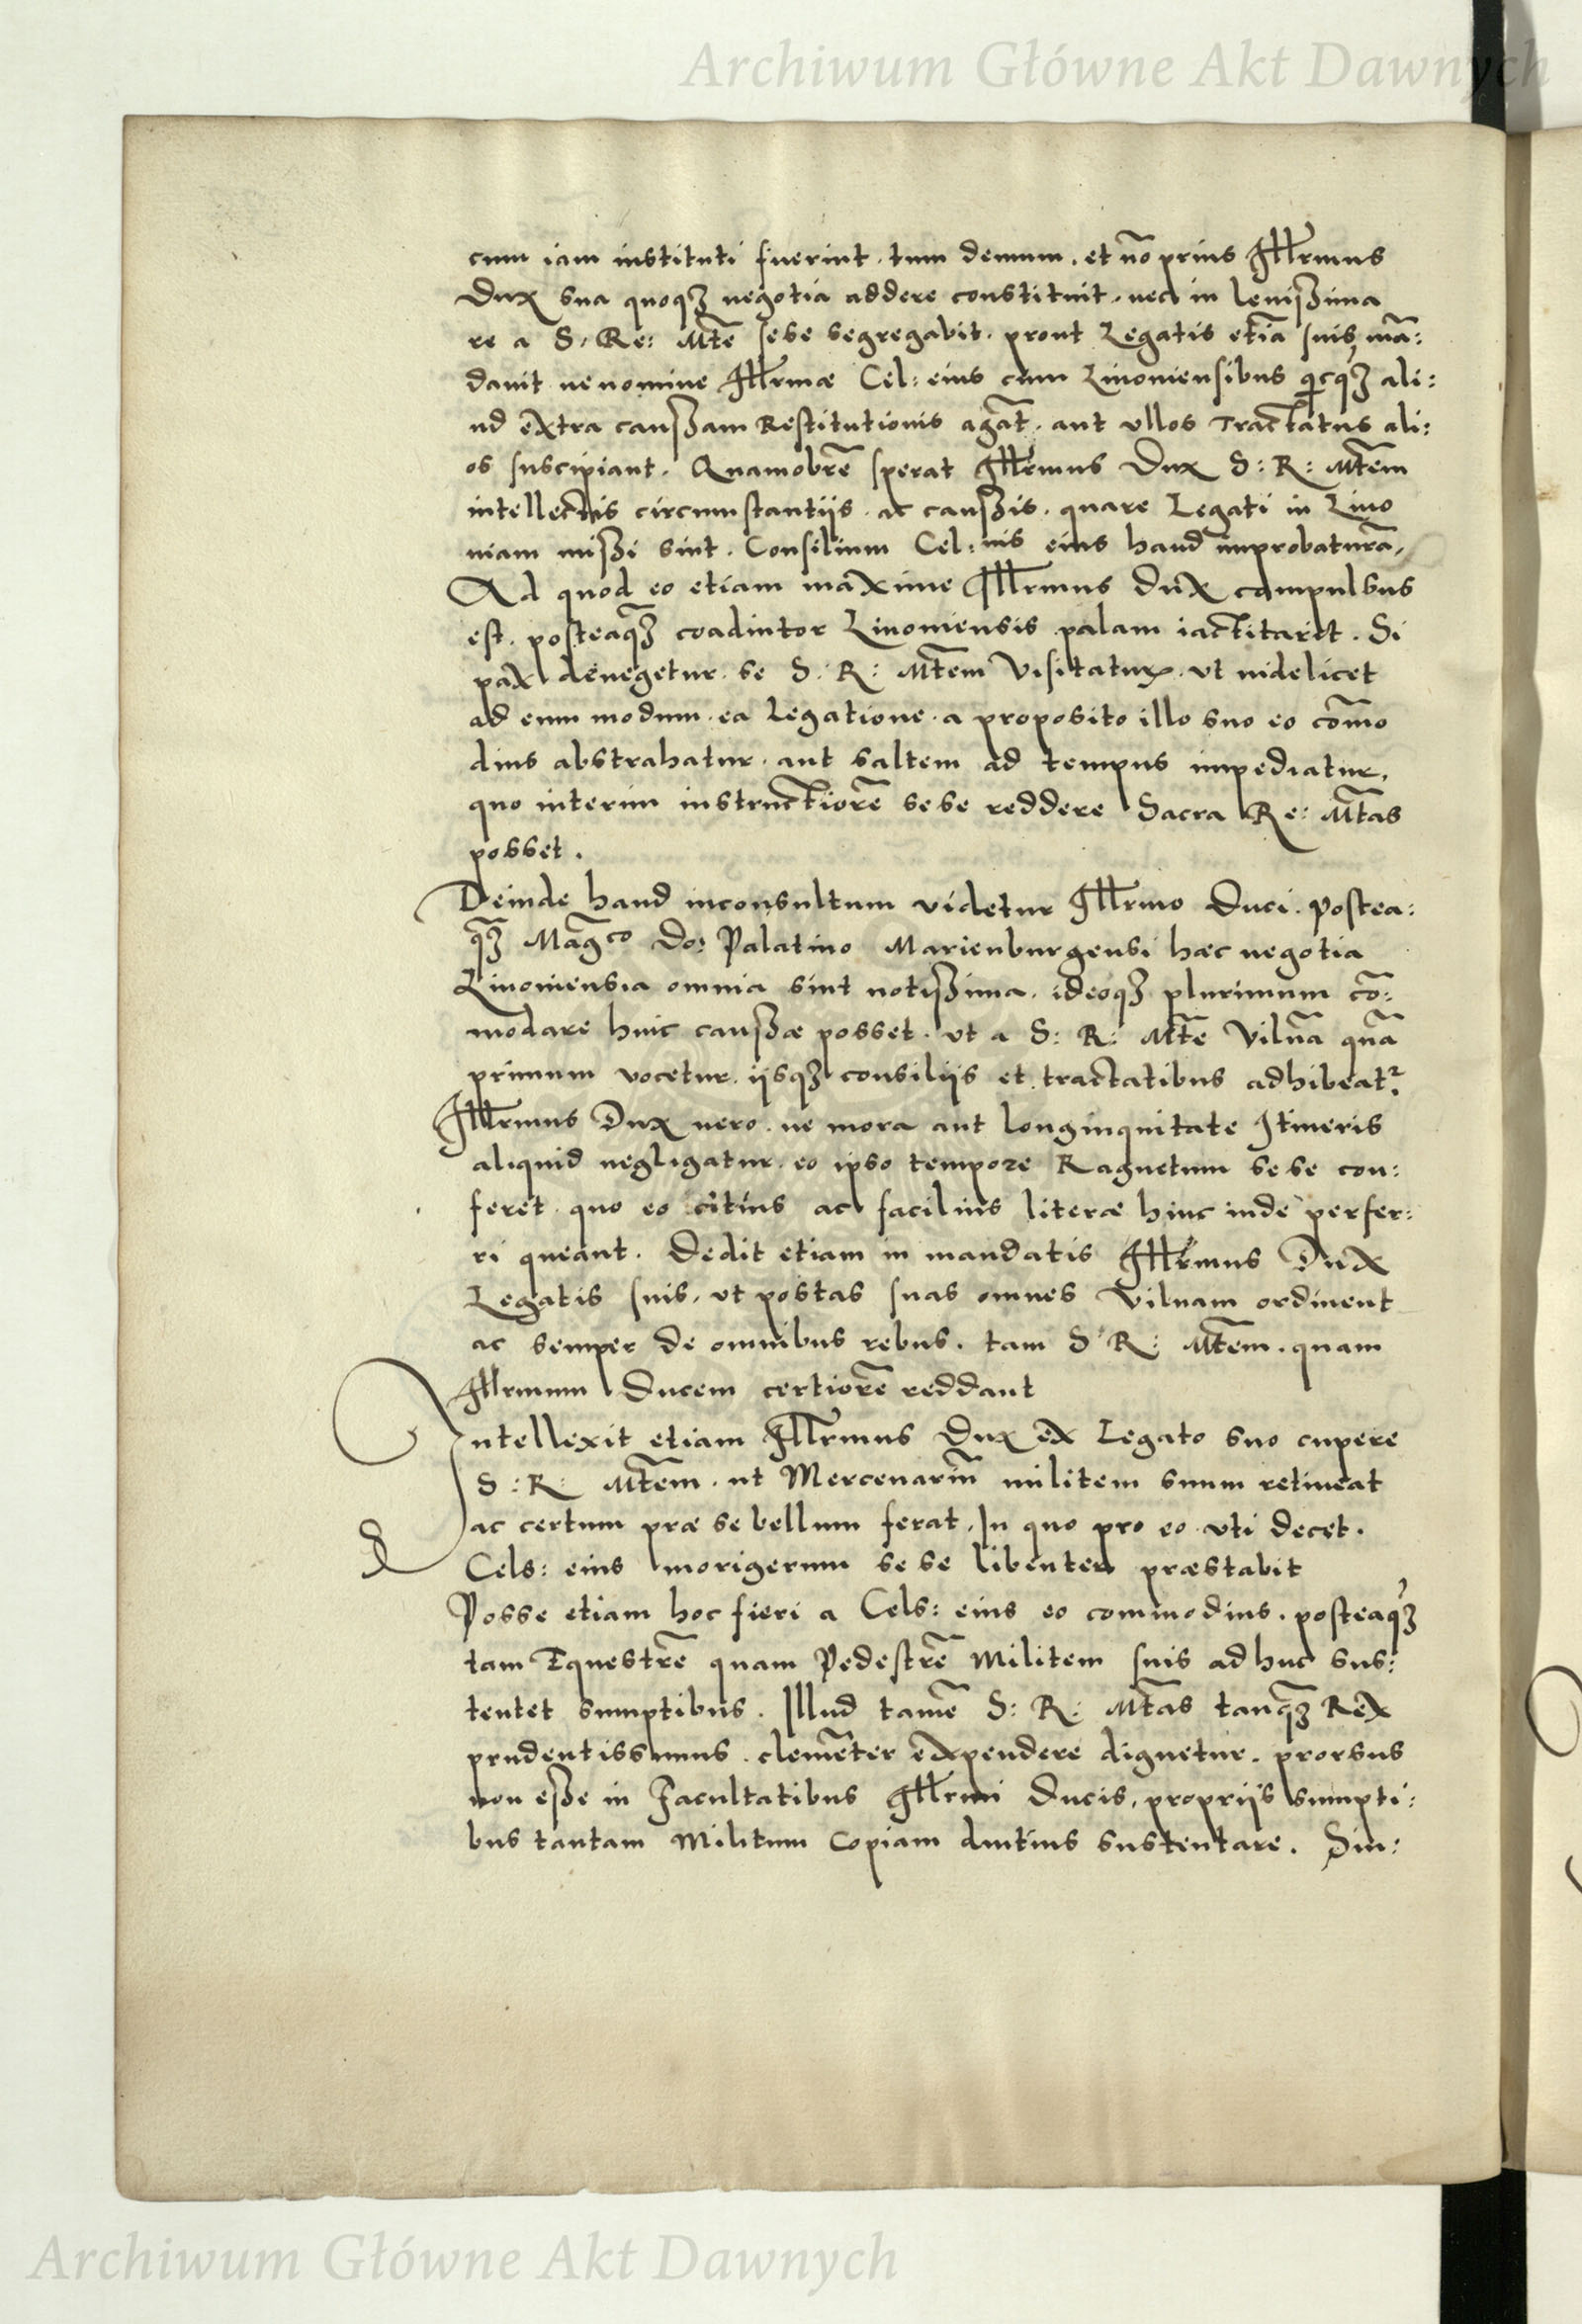 Archiwum Główne Akt Dawnych
cum iam instituti fuerint. tum demum. et nō prius Illrmus
Dux sua quoqȝ negotia addere constituit. nec in leuißima
re a S. Re: Mte sese segregabit. prout Legatis etiā suis mā:
dauit ne nomine Illrmæ Cel: eius cum Liuoniensibus qicqȝ ali:
ud extra caußam Restitutionis agāt. aut vllos Tractatus ali:
os suscipiant. Quamobrē sperat Illrmus Dux S: R: Mtem
intellectis circumstantijs. ac caußis. quare Legati in Liuo
niam mißi sint. Consilium Cel:nis eius haud improbaturā,
Ad quod eo etiam maxime Illrmus Dux compulsus
est. posteaqȝ coadiutor Liuoniensis palam iactitarit. Si
pax denegetur. se S. R: Mtem Visitatur. vt uidelicet
ad eum modum. ea Legatione. a proposito illo suo eo cōmo
dius abstrahatur. aut saltem ad tempus impediatur,
quo interim instructiorē sese reddere Sacra Re: Mtas
posset.
Deinde haud inconsultum videtur Illrmo Duci. postea:
qȝ Magco Do: Palatino Marienburgensi hæc negotia
Liuoniensia omnia sint notißima. ideoqȝ plurimum cō:
modare huic caußæ posset. vt a S: R: Mte Vilnā quā
primum vocetur. ijsqȝ consilijs et tractatibus adhibeatr.
Illrmus Dux uero. ne mora aut longinquitate Itineris
aliquid negligatur. eo ipso tempore Ragnetum sese con:
feret. quo eo citius ac facilius literæ hinc inde perfer:
ri queant. Dedit etiam in mandatis Illrmus Dux
Legatis suis. vt postas suas omnes Vilnam ordinent
ac semper de omnibus rebus. tam S R: Mtem. quam
Illrmum Ducem certiorē reddant
Intellexit etiam Illrmus Dux ex Legato suo cupere
S: R: Mtem. ut Mercenariū militem suum retineat
ac certum præ se bellum ferat. In quo pro eo vti decet.
Cels: eius morigerum sese libenter præstabit
Posse etiam hoc fieri a Cels: eius eo commodius. posteaqȝ
tam Equestrē quam Pedestrē Militem suis adhuc sus:
tentet sumptibus. Illud tamē S: R: Mtas tanqȝ Rex
prudentissimus. clemēter expendere dignetur. prorsus
non eße in Facultatibus Illrmi Ducis, proprijs sumpti:
bus tantam Militum Copiam diutius sustentare. Sin:
Archiwum Główne Akt Dawnych